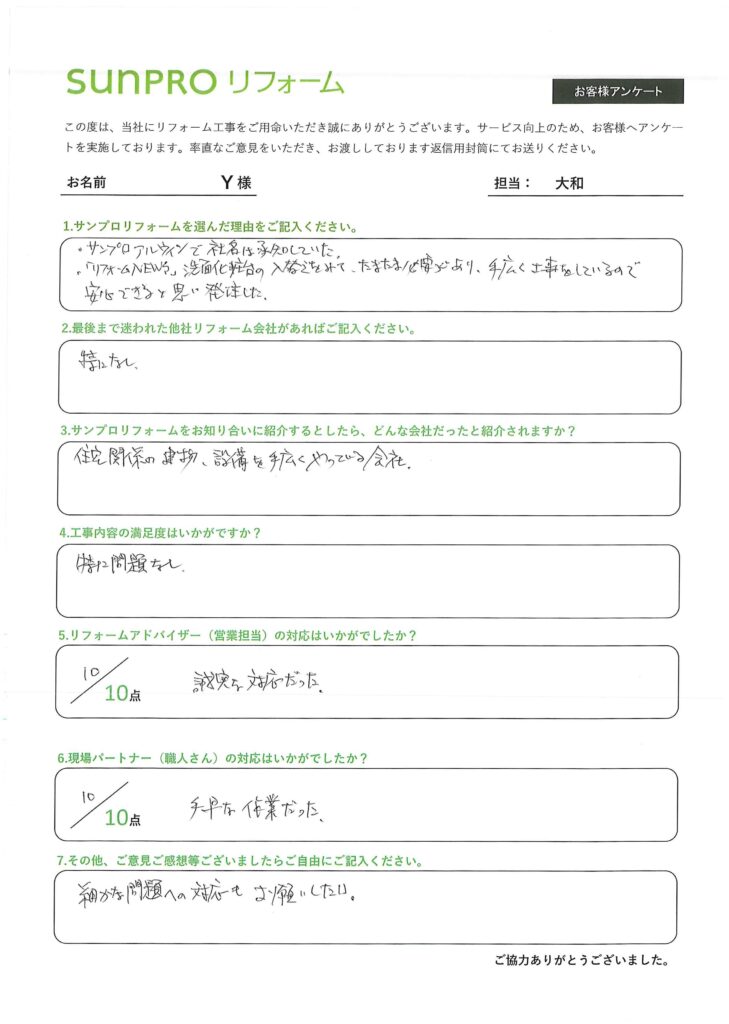 sunPRO リフォーム
お客様アンケート
この度は、当社にリフォーム工事をご用命いただき誠にありがとうございます。サービス向上のため、お客様へアンケー
トを実施しております。率直なご意見をいただき、お渡ししております返信用封筒にてお送りください。
お名前 Y 様 担当： 大和
1.サンプロリフォームを選んだ理由をご記入ください。
・サンプロアルウィンで社名は承知していた。
・「リフォームNEWS」洗面化粧台の入替を見て、たまたま必要があり、手広く工事をしているので
安心できると思い発注した。
2.最後まで迷われた他社リフォーム会社があればご記入ください。
特になし。
3.サンプロリフォームをお知り合いに紹介するとしたら、どんな会社だったと紹介されますか？
住宅関係の建物、設備を手広くやっている会社。
4.工事内容の満足度はいかがですか？
特に問題なし。
5.リフォームアドバイザー（営業担当）の対応はいかがでしたか？
10/10点 誠実な対応だった。
6.現場パートナー（職人さん）の対応はいかがでしたか？
10/10点 手早な作業だった。
7.その他、ご意見ご感想等ございましたらご自由にご記入ください。
細かな問題への対応もお願いしたい。
ご協力ありがとうございました。